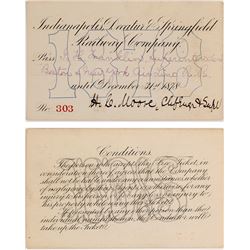 Indianapolis, Decatur & Springfield
Railway Company.
Pass
Boston & New York
until December 31st 1878
No. 303
H. C. Moore,
Conditions.
The person who accepts this Free Ticket, in
consideration thereof agrees that the Company
shall not be liable under any circumstances, whether
of negligence by their Agents or otherwise for any
injury to the person or for any loss or injury to
his property while using this Ticket.
If presented by any other person than the
individual named thereon, the Conductor will
take up the Ticket.